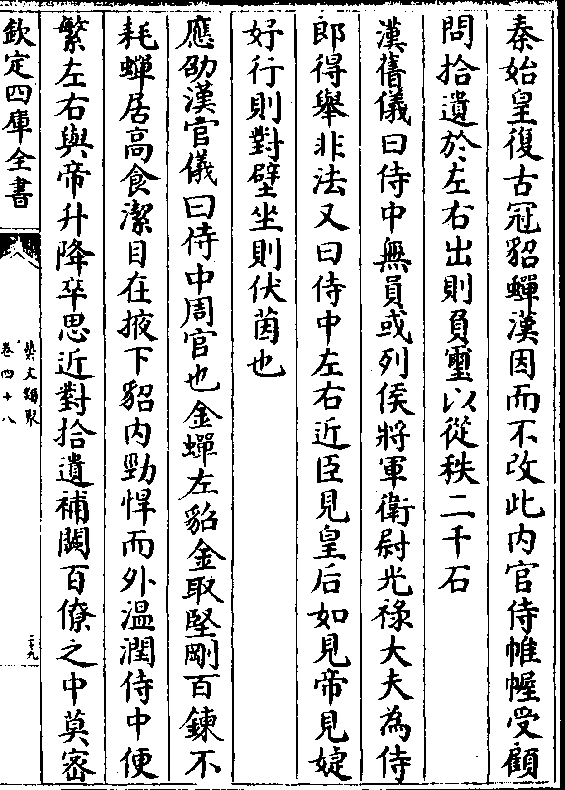 秦始皇復古冠貂蟬漢因而不改此内官侍帷幄受顧
問拾遺於左右出則負璽以從秩二千石
漢舊儀曰侍中無員或列侯將軍衛尉光祿大夫為侍
郎得舉非法又曰侍中左右近臣見皇后如見帝見婕
好行則對壁坐則伏茵也
應劭漢官儀曰侍中周官也金蟬左貂金取堅剛百鍊不
耗蟬居高食潔目在掖下貂内勁悍而外温潤侍中便
繁左右與帝升降卒思近對拾遺補闕百僚之中莫密
欽定四庫全書
藝文類聚
卷四十八
二十九